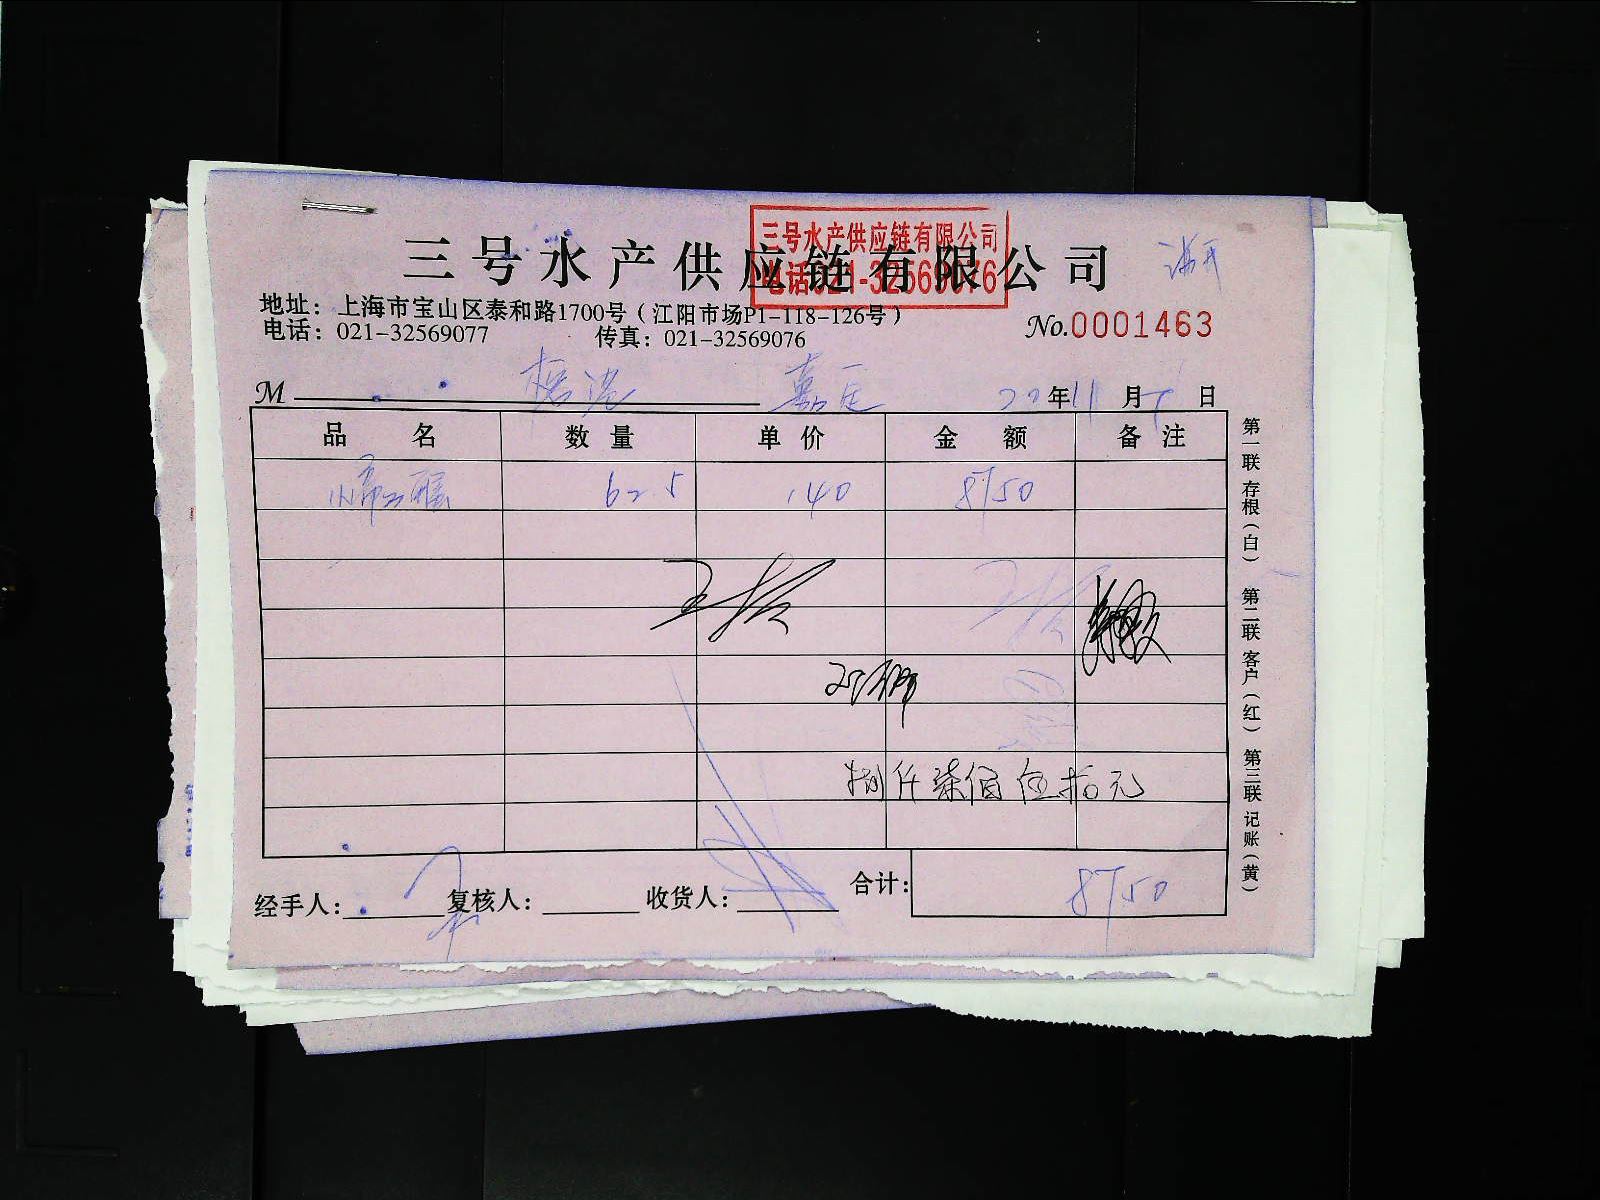 三号水产供应链有限公司
三号水产供应链有限公司
电话021-32569076
地址：上海市宝山区泰和路1700号（江阳市场P1-118-126号）
电话：021-32569077 传真：021-32569076
No.0001463
M 嘉定 22年11月 日
品名 数量 单价 金额 备注
62.5 140 8750
捌仟柒佰伍拾元
经手人： 复核人： 收货人： 合计： 8750
第一联 存根（白） 第二联 客户（红） 第三联 记账（黄）